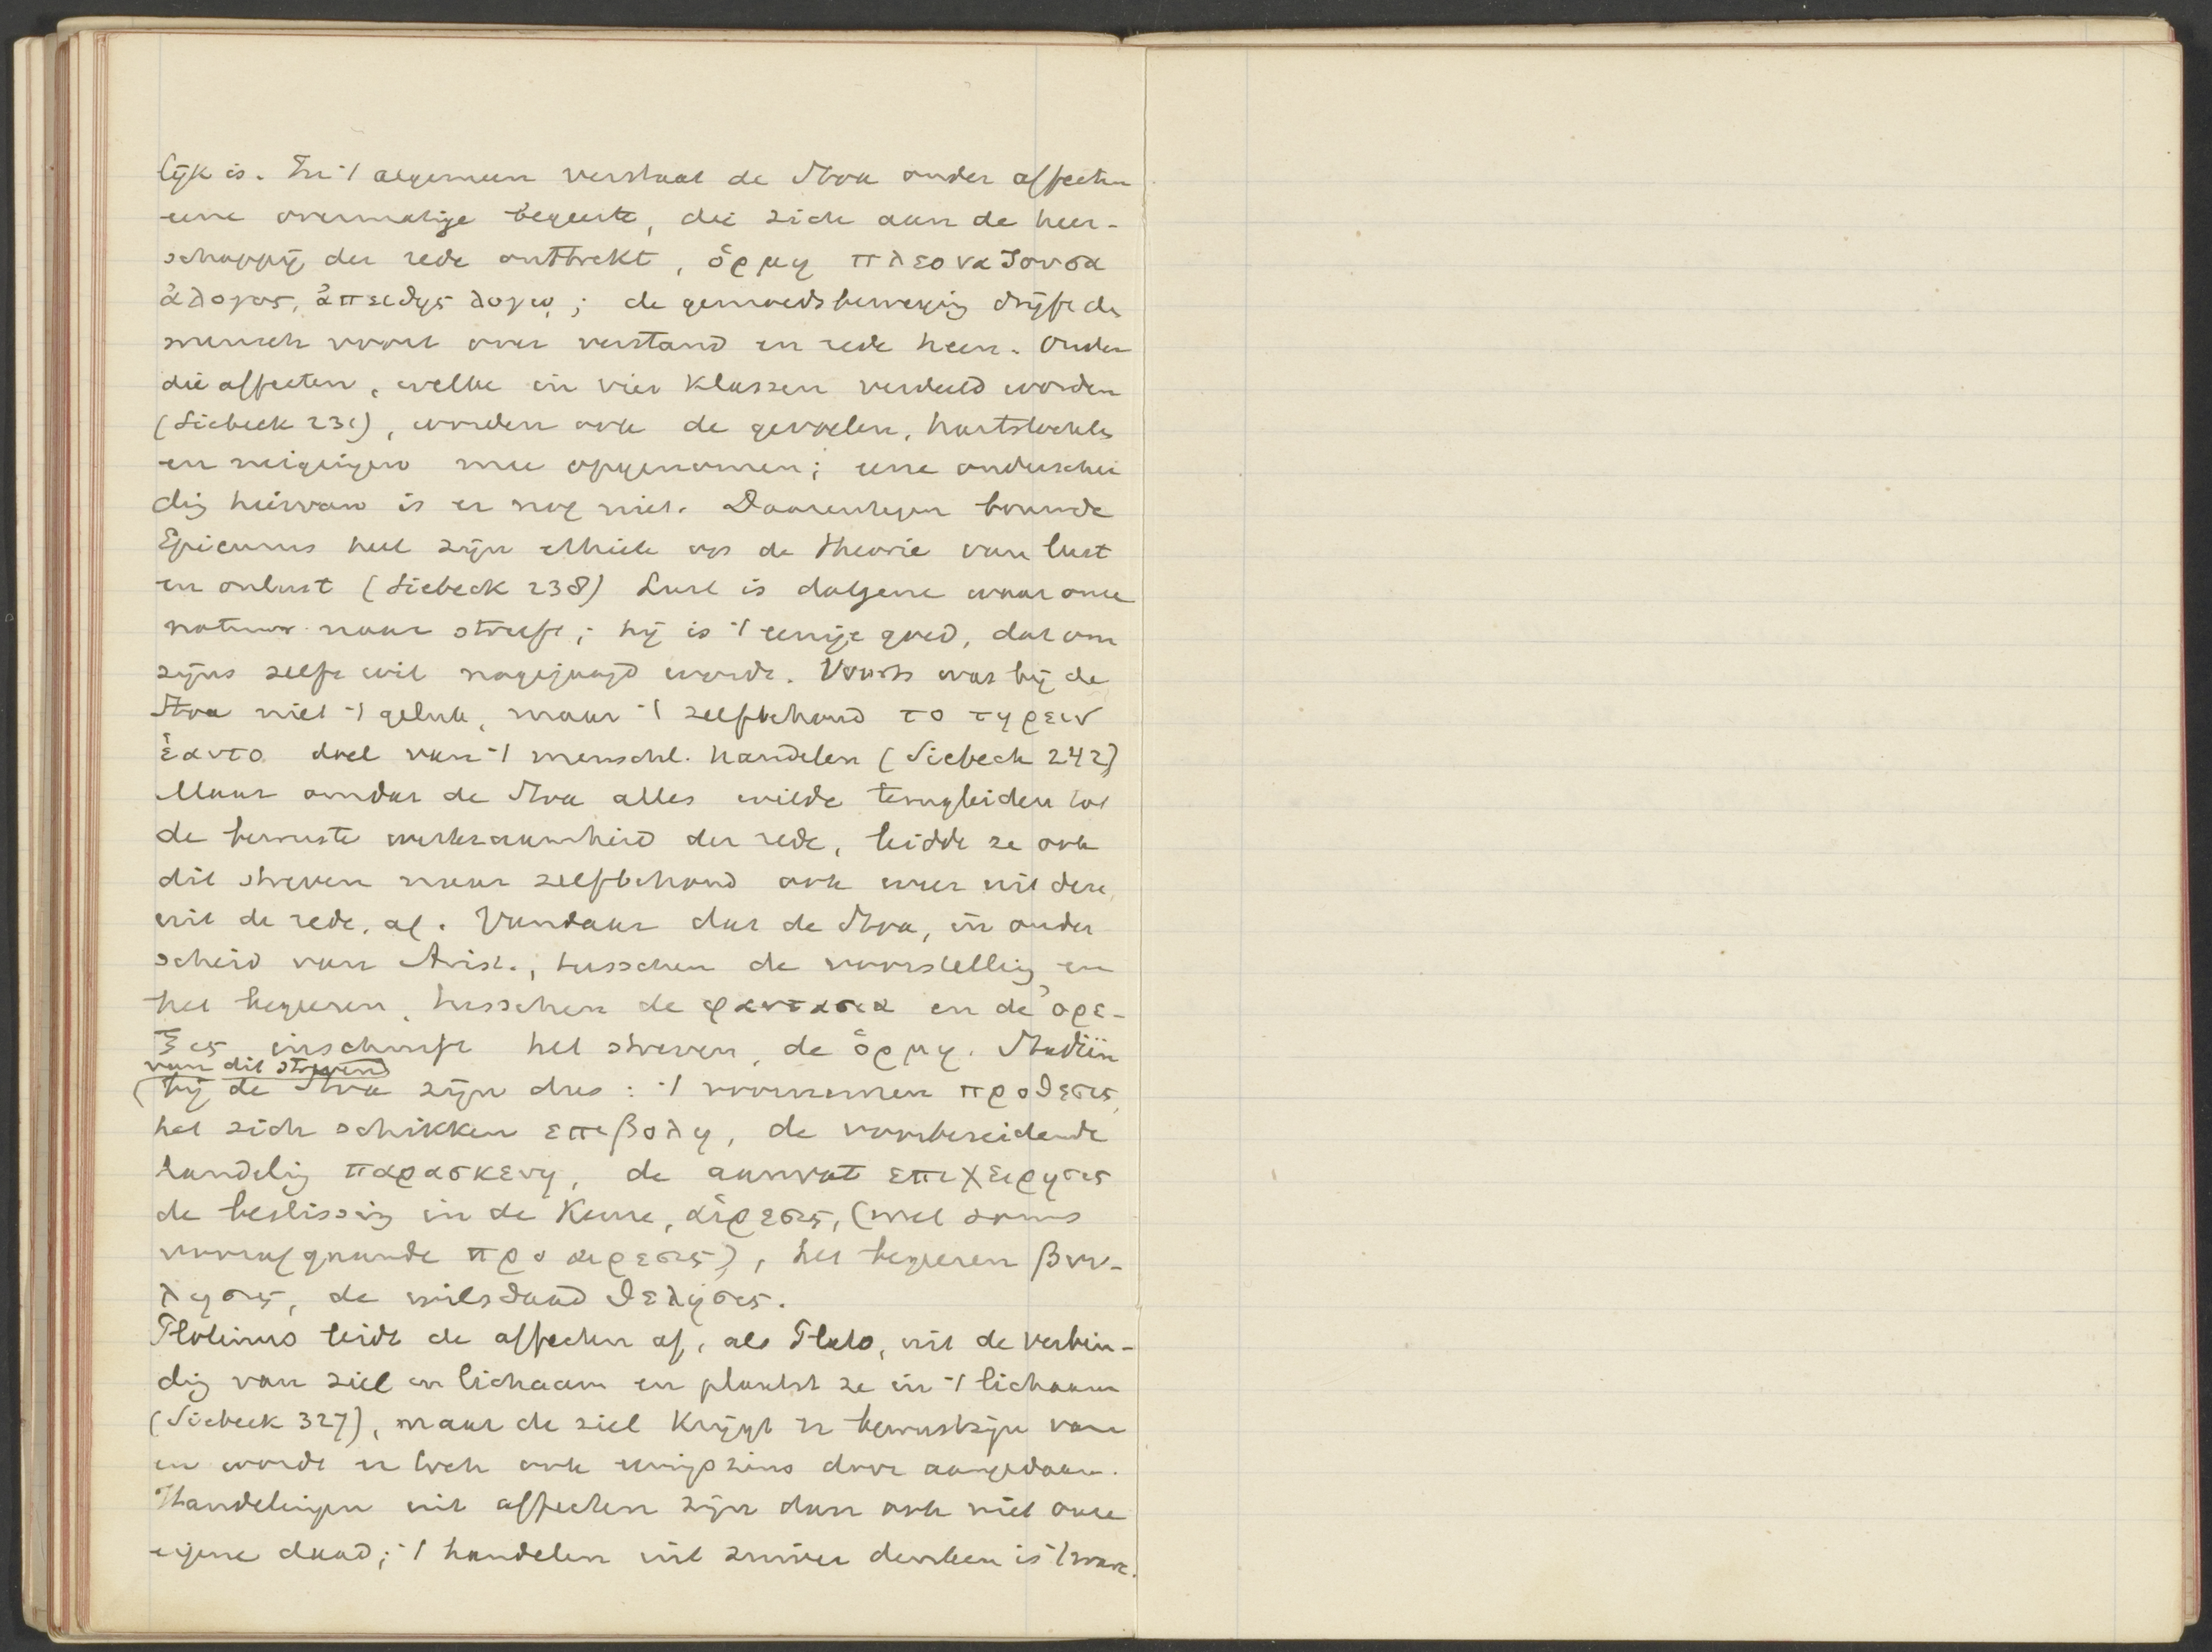 lijk is. In 't algemeen verstaat de Stoa onder affecten
eene overmatige begeerte, die zich aan de heer-
schappij der rede onttrekt, ὁρμη πλεοναζουσα
ἀλογος, ἀπειθης λογῳ; de gemoedsbeweging drijft de
mensch voort over verstand en rede heen. Onder
die affecten, welke in vier klassen verdeeld worden
(Siebeck 231), worden ook de gevoelen, hartstochten
en neigingen mee opgenomen; eene onderschei
ding hiervan is er nog niet. Daarentegen bouwde
Epicurus heel zijn ethiek op de theorie van lust
en onlust (Siebeck 238) Lust is datgene waar onze
natuur naar streeft; hij is 't eenige goed, dat om
zijns zelfs wil nagejaagd wordt. Voorts was bij de
Stoa niet 't geluk, maar 't zelfbehoud το τηρειν
ἑαυτο doel van 't menschl. handelen (Siebeck 242)
Maar omdat de Stoa alles wilde terugleiden tot
de bewuste werkzaamheid der rede, leidde ze ook
dit streven naar zelfbehoud ook weer uit deze,
uit de rede, af. Vandaar dat de Stoa, in onder
scheid van Arist., tusschen de voorstelling en
het begeeren, tusschen de φαντασια en de ὀρε-
ξις inschuift het streven, de ὁρμη. Stadiën
van dit streven
(bij de Stoa zijn dus: 't voornemen προθεσις,
het zich schikken επιβολη, de voorbereidende
handeling παρασκευη, de aanvat επιχειρησις
de beslissing in de keuze, αἱρεσις, (met soms
voorafgaande προαιρεσις), het begeeren βου-
λησις, de wilsdaad θελησις.
Plotinus leidt de affecten af, als Plato, uit de verbin-
ding van ziel en lichaam en plaatst ze in 't lichaam
(Siebeck 327), maar de ziel krijgt er bewustzijn van
en wordt er toch ook eenigszins door aangedaan.
Handelingen uit affecten zijn dan ook niet onze
eigene daad; 't handelen uit zuiver denken is 't ware.